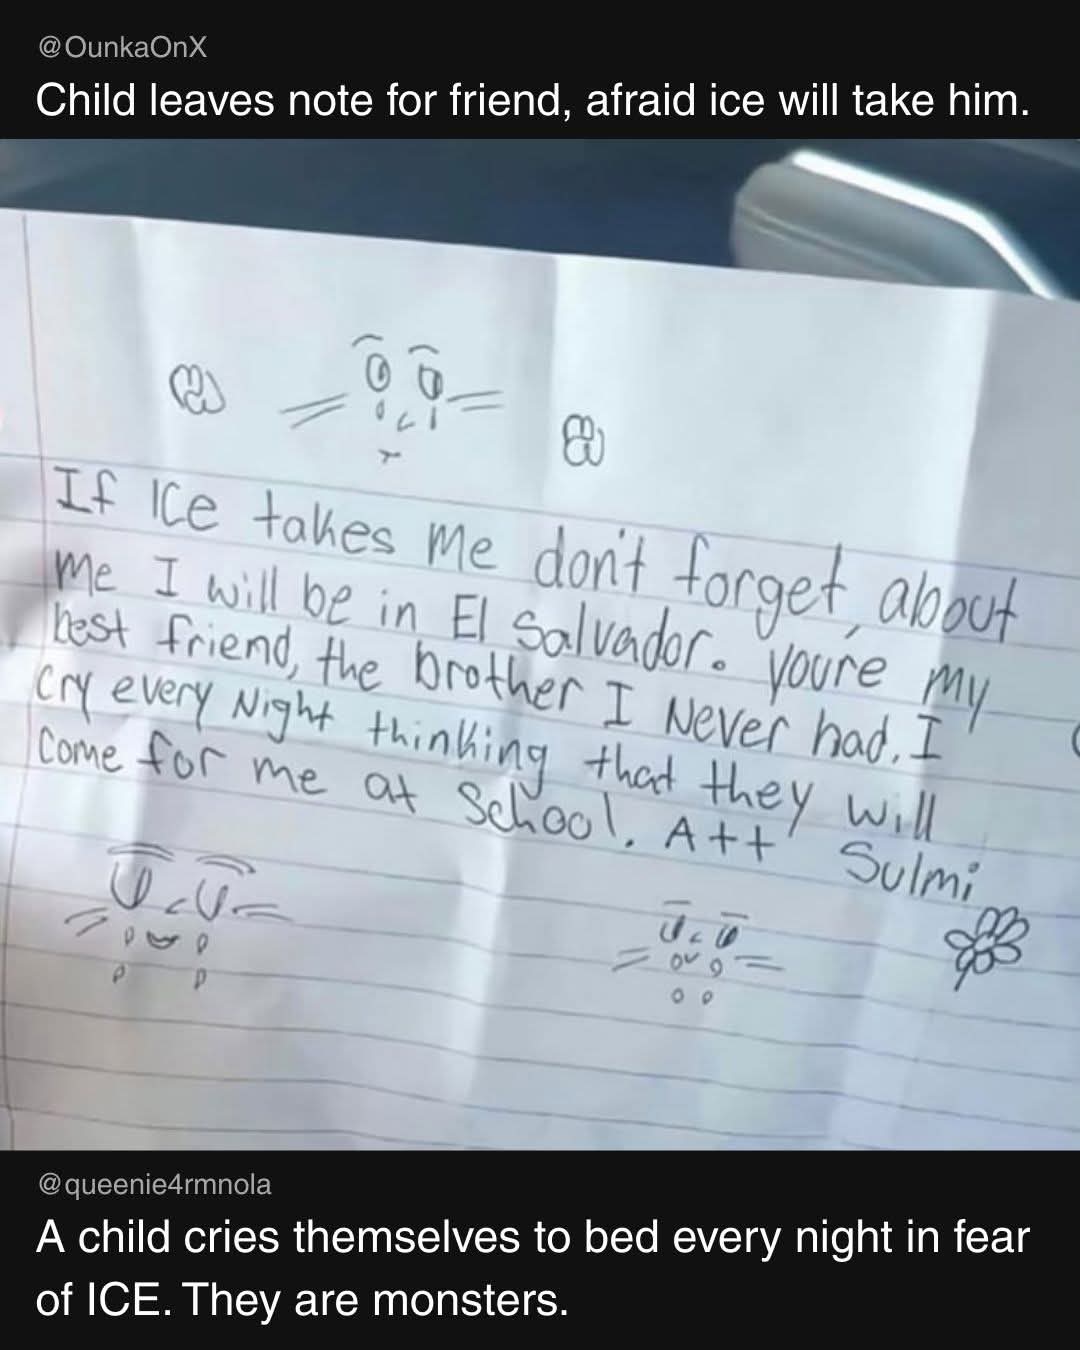 @OunkaOnX
Child leaves note for friend, afraid ice will take him.
If Ice takes me don't forget, about
me I will be in El Salvador. youre my
best friend, the brother I Never had. I
cry every Night thinking that they will
Come for me at School. Att Sulmi
@queenie4rmnola
A child cries themselves to bed every night in fear
of ICE. They are monsters.